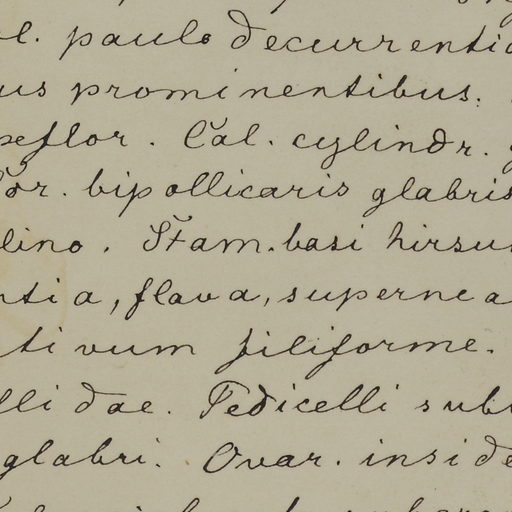 l. paulo decurrentia
us prominentibus.
flor. Cal. cylindr.
Cor. bipollicaris glabris
lino. Stam. basi hirsu
ntia, flava, superne a
tivum filiforme.
llidae. Pedicelli sub
glabri. Ovar. inside